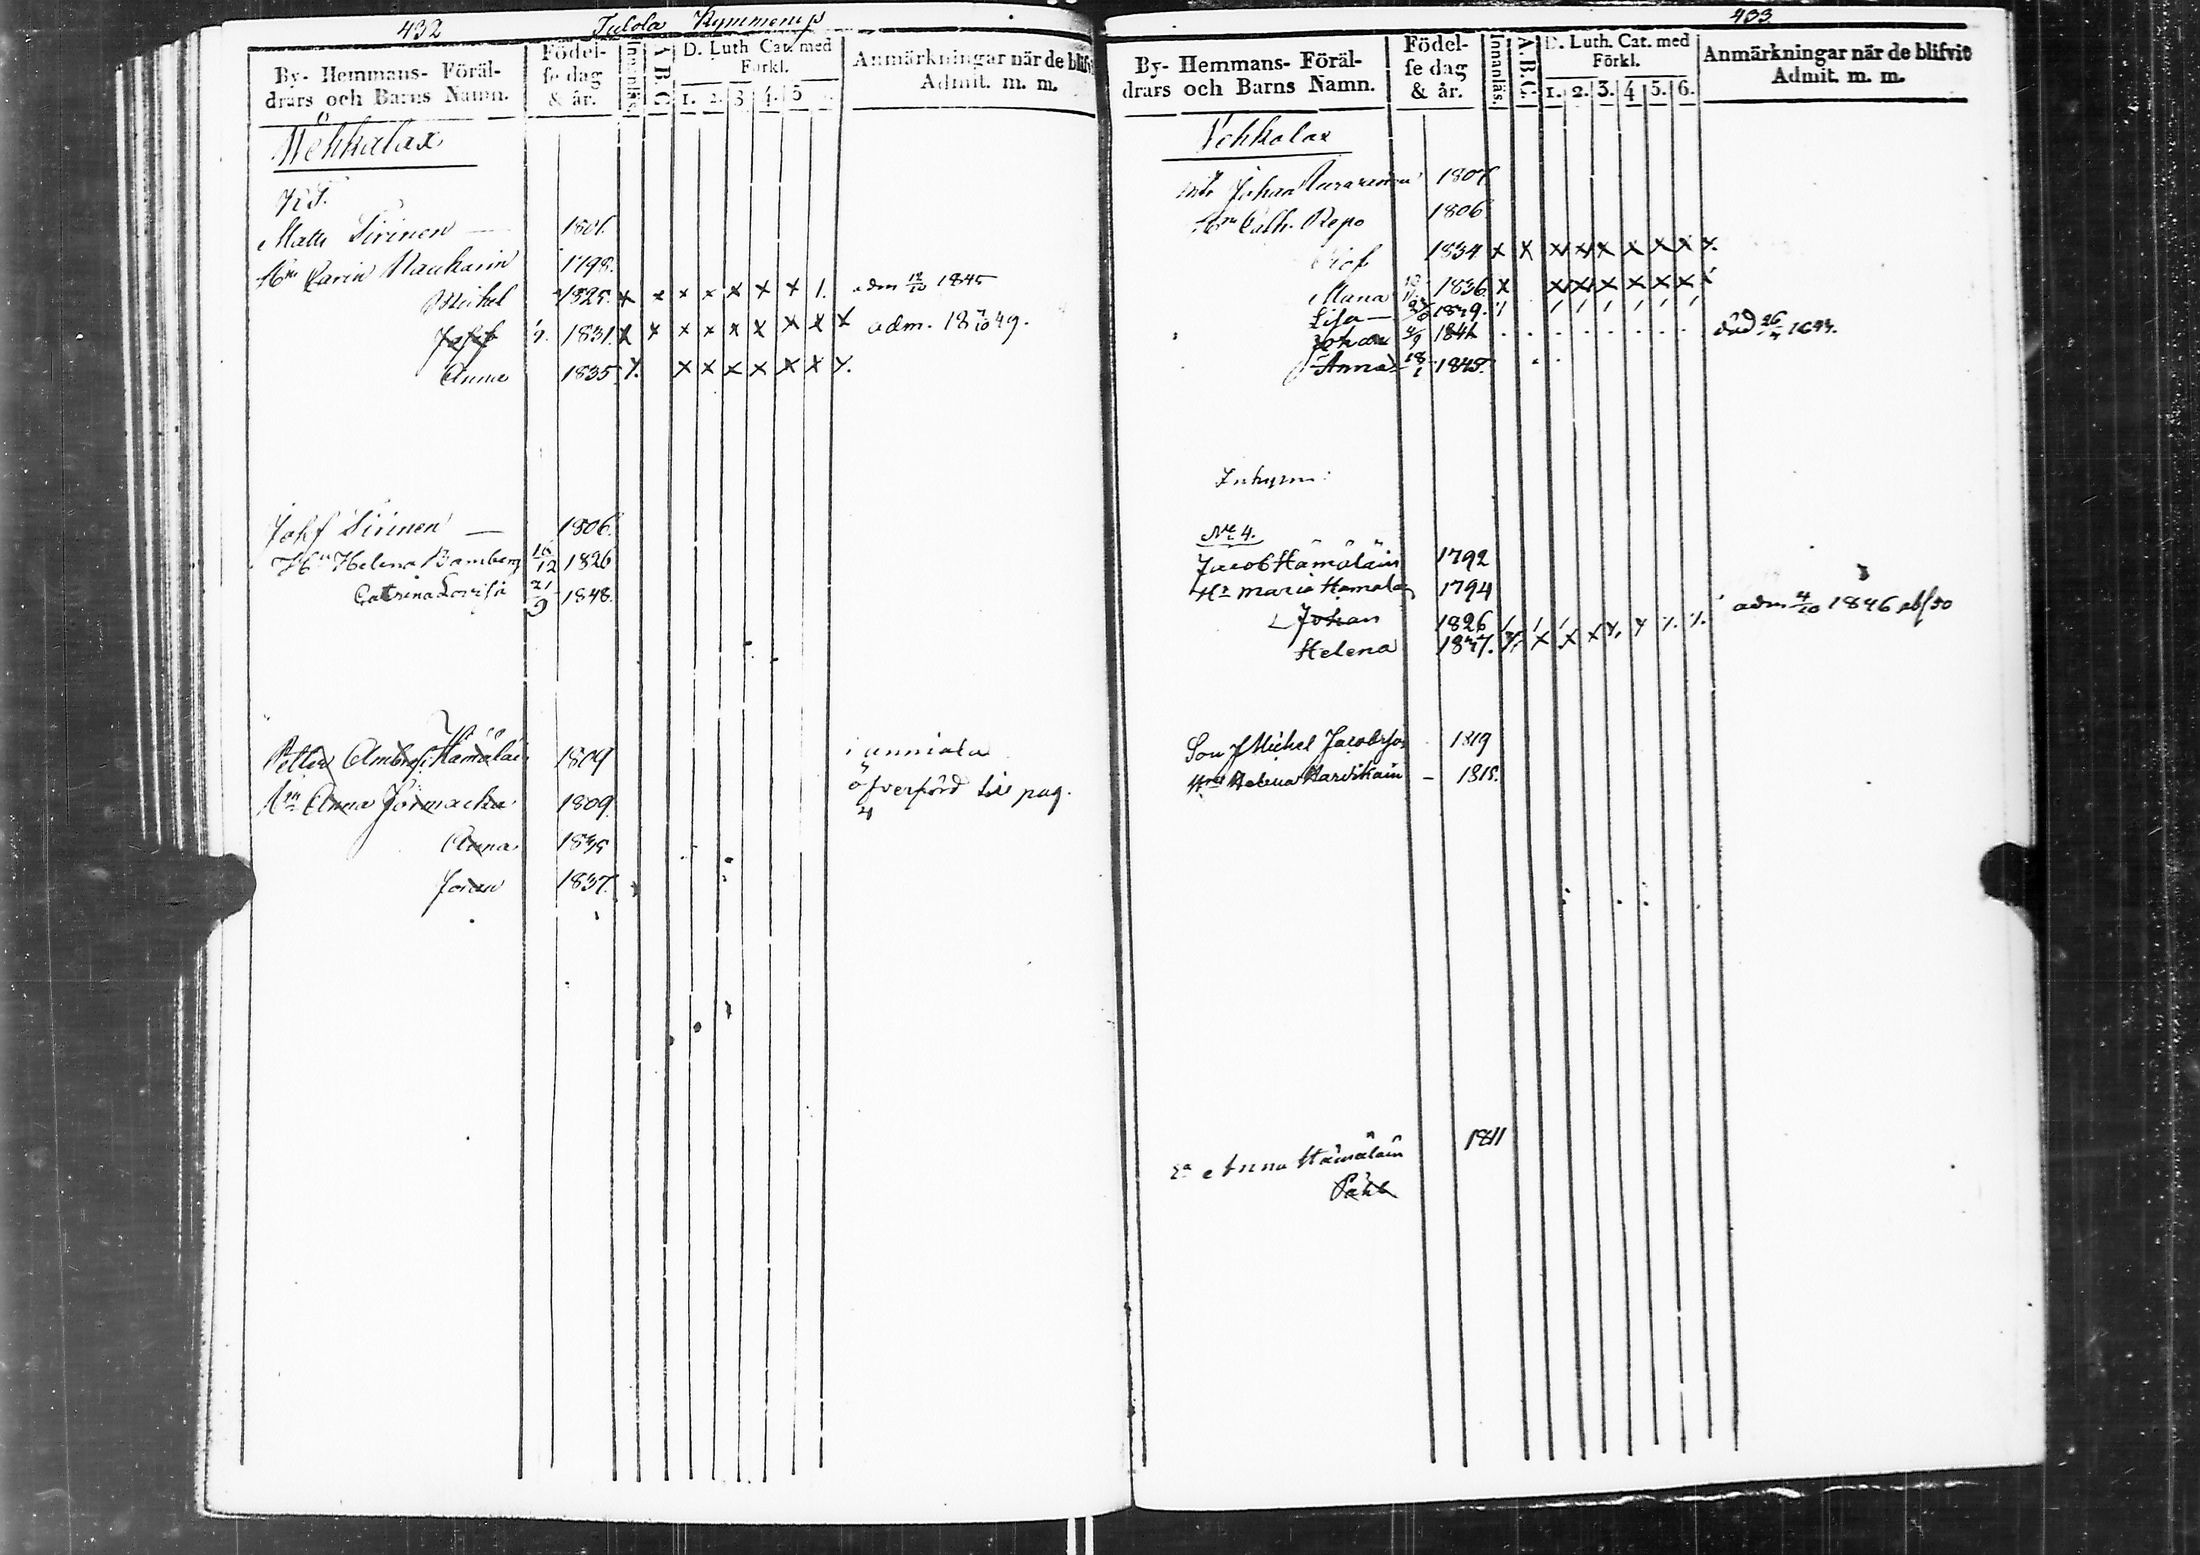 432 Julola Kymmene
By- Hemmans- Föräl-
drars och Barns Namn.
Födel-
se dag
& år.
Innanläs.
A.B.C.
D. Luth. Cat. med
Förkl.
1. 2. 3 4. 5
Anmärkningar när de blifvi
Admit. m. m.
Wehkalax
Matts Sirinen — 1801.
Hu Carin Naukarin 1798.
Michel 1825. x x x x x x x 1. adm 12/10 1845
Josef 1831. x x x x x x x x x adm. 18 7/10 49.
Anna 1835 x x x x x x
Josef Sirinen — 1806.
Hu Helena Bamberg 10/12 1826
Catrina Lovisa 21/9 1848.
Petter Ambrosi Hämäläin 1804
Hu Anna Jormacka 1809.
öfverförd till pag.
Anna 1835
Johan 1837.
433
By- Hemmans- Föräl-
drars och Barns Namn.
Födel-
se dag
& år.
Innanläs.
A.B.C.
D. Luth. Cat. med
Förkl.
1. 2. 3. 4 5. 6.
Anmärkningar när de blifvit
Admit. m. m.
Vehkalax
Johan 1807
Hu Cath. Repo 1806
1834 x x x x x x x x
Maria 1836 x x x x x x x
Lisa — 1839.
Johan 4/9 1841 död 26/4
Anna 18/1 1845.
Inhysn:
No 4.
Jacob Hämäläin 1792
Hu Maria Hämäläin 1794
Johan 1826 adm 4/10 1846
Helena 1837.
Son Michel Jacobsson 1819
Hu Helena Narvikain — 1818.
Anna Hämäläin 1811
Påhl